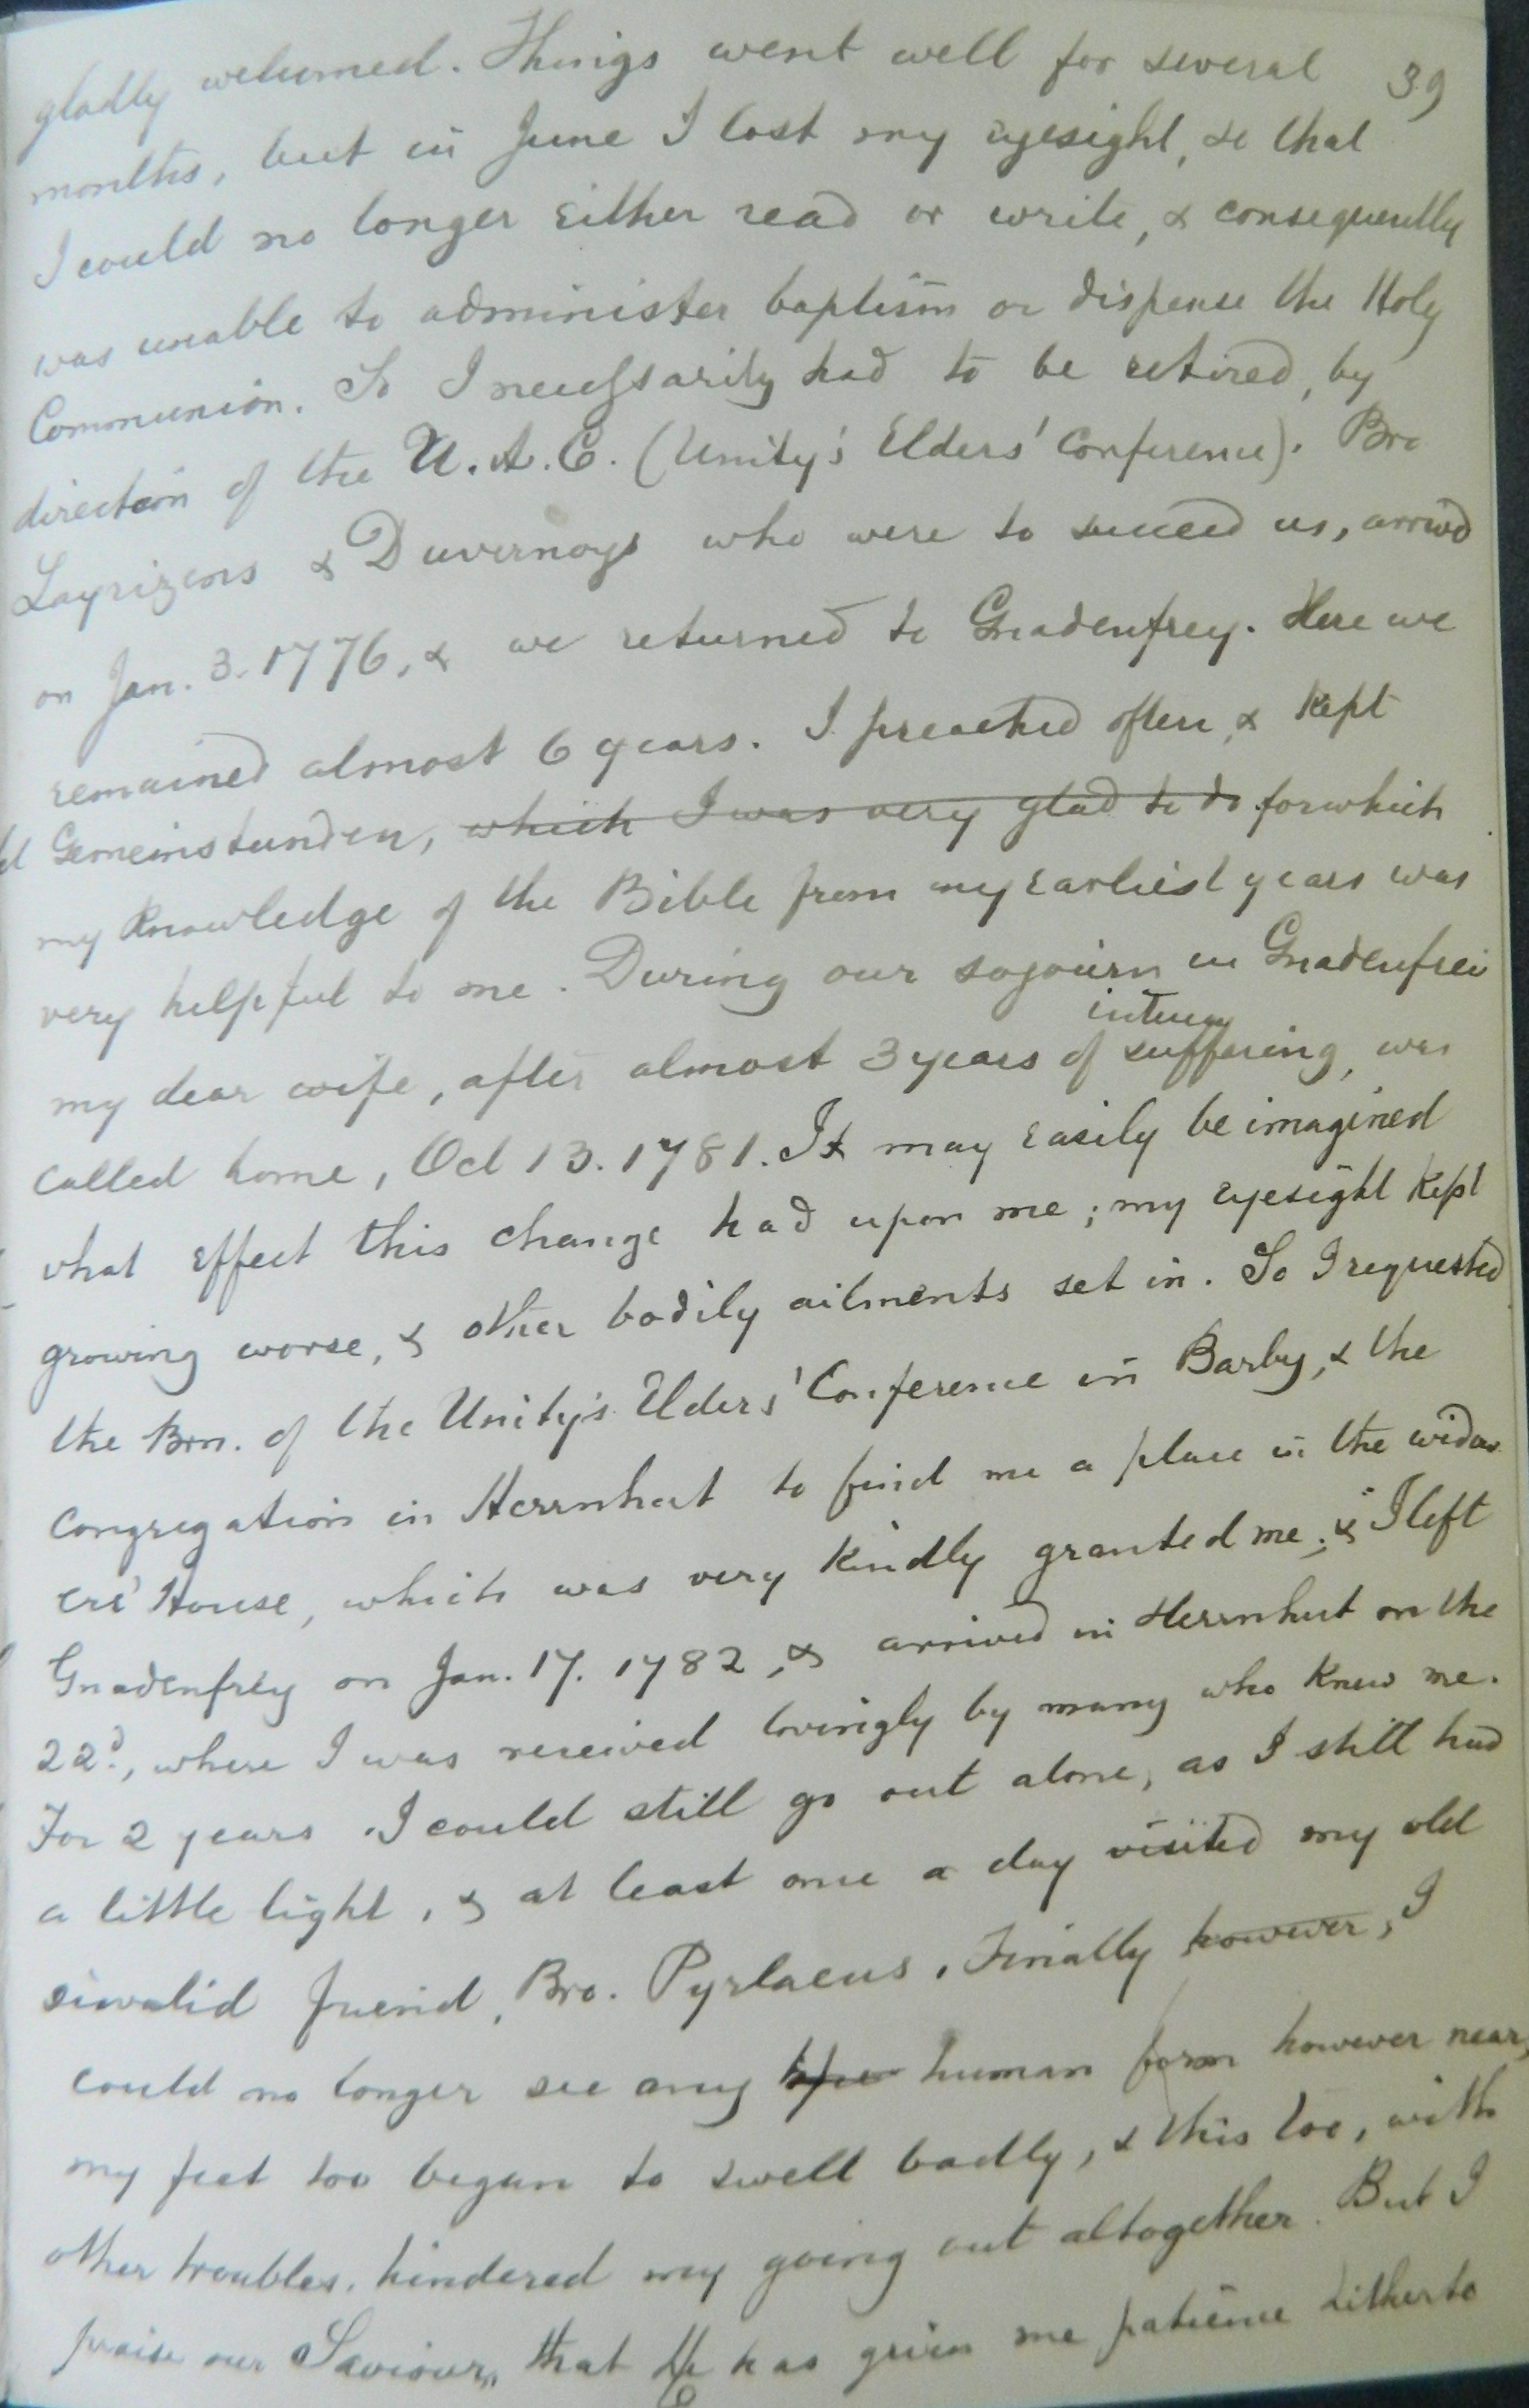 39
gladly welcomed. Things went well for several
months, but in June I lost my eyesight, so that
I could no longer either read or write, & consequently
was unable to administer baptism or dispense the Holy
Communion. So I necessarily had to be retired, by
direction of the U.A.C. (Unity's Elders' Conference). Bro
Layrizens & Duvernoys who were to succeed us, arrived
on Jan. 3. 1776, & we returned to Gnadenfrey. Here we
remained almost 6 years. I preached often, & kept
Gemeinstunden, which I was very glad to do for which
my knowledge of the Bible from my earliest years was
very helpful to me. During our sojourn in Gnadenfrei
my dear wife, after almost 3 years of suffering, was
called home, Oct 13. 1781. It may easily be imagined
what effect this change had upon me; my eyesight kept
growing worse, & other bodily ailments set in. So I requested
the Brn. of the Unity's Elders' Conference in Barby, & the
congregation in Herrnhut to find me a place in the widow
ers' House, which was very kindly granted me; & I left
Gnadenfrey on Jan. 17. 1782, & arrived in Herrnhut on the
22d., where I was received lovingly by many who knew me.
For 2 years I could still go out alone, as I still had
a little light, & at least once a day visited my old
invalid friend, Bro. Pyrlaeus. Finally however, I
could no longer see any human form however near,
my feet too began to swell badly, & this too, with
other troubles, hindered my going out altogether. But I
praise our Saviour, that He has given me patience hitherto